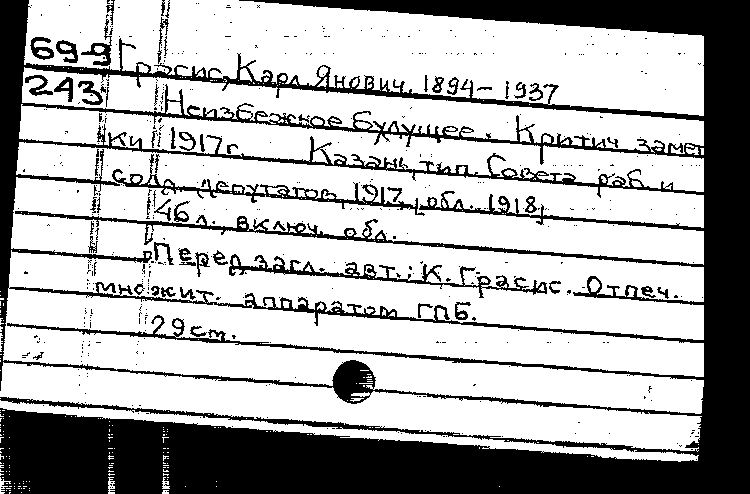 69-9 Грасис, Карл Янович. 1894-1937
243 Неизбежное будущее. Критич. замет
ки 1917г. Казань, тип. Совета раб. и
солд. депутатов, 1917 [обл. 1918]
46 л., включ. обл.
Перед загл. авт.: К. Грасис. Отпеч.
множит. аппаратом ГПБ.
29 см.